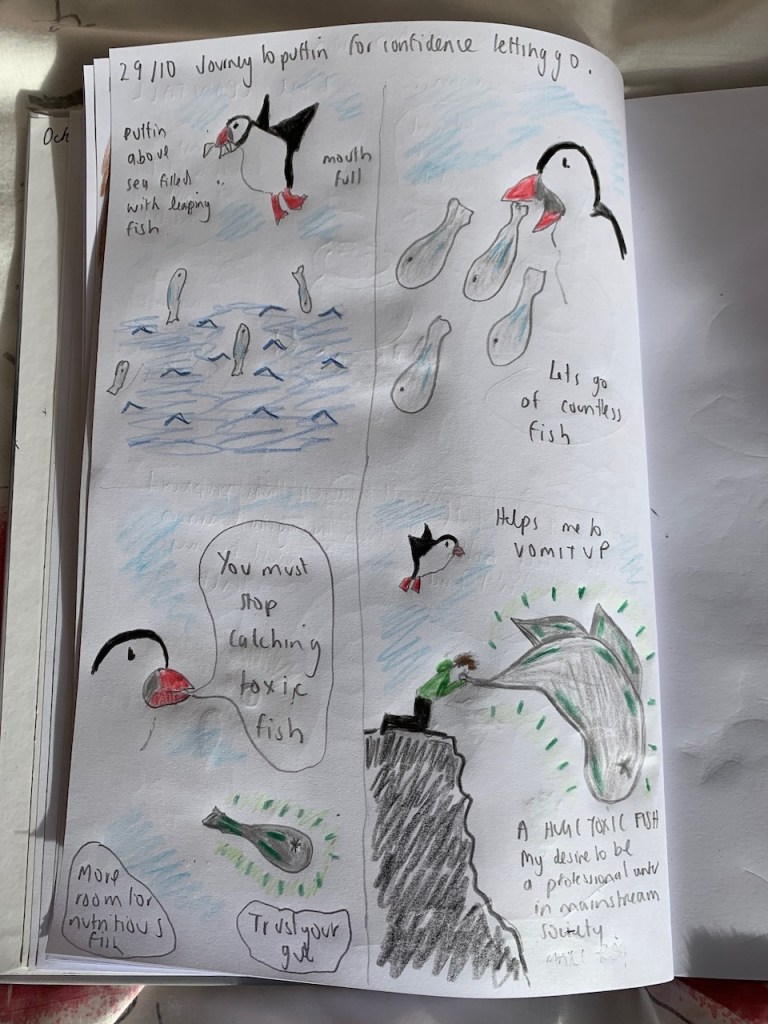 29/10 Journey to puffin for confidence letting go.
Oct
puffin
above
sea filled
with leaping
fish
mouth
full
Lets go
of countless
fish
You must
stop
catching
toxic
fish
More
room for
nutritious
fish
Trust your
gut
Helps me to
VOMIT UP
A HUGE TOXIC FISH
My desire to be
a professional
in mainstream
society